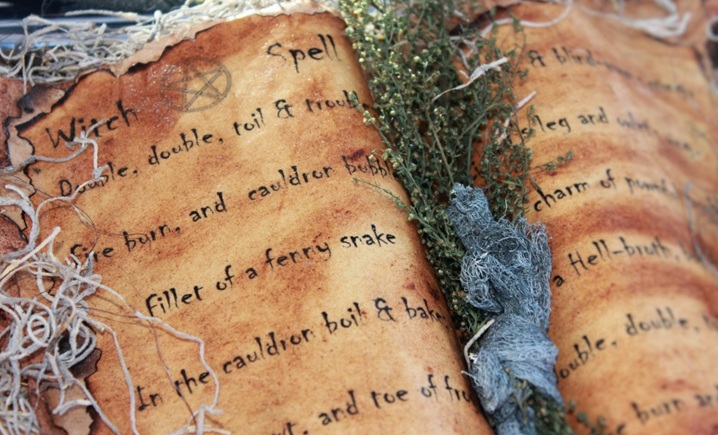 Witch Spell
Double, double, toil & troub
fire burn, and cauldron bubbl
fillet of a fenny snake
In the cauldron boil & bake
and toe of fro
&
leg and
charm of
a Hell-broth,
ouble, double,
burn